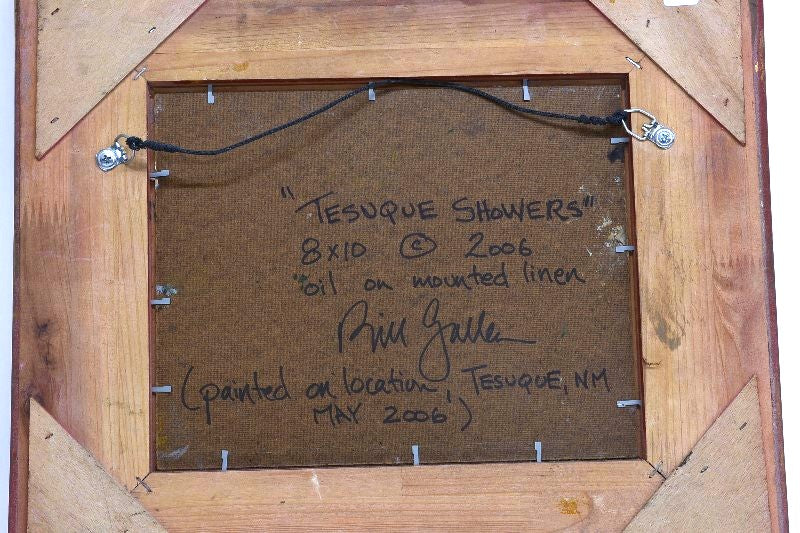 "TESUQUE SHOWERS"
8x10 © 2006
oil on mounted linen
Bill Gallen
(painted on location, TESUQUE, NM
MAY 2006)